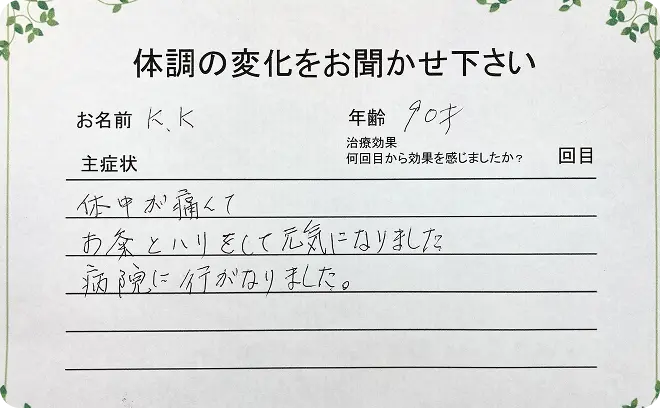 体調の変化をお聞かせ下さい
お名前 K.K 年齢 90才
主症状 治療効果
何回目から効果を感じましたか? 回目
体中が痛くて
お灸とハリをして元気になりました
病院に行がなりました。